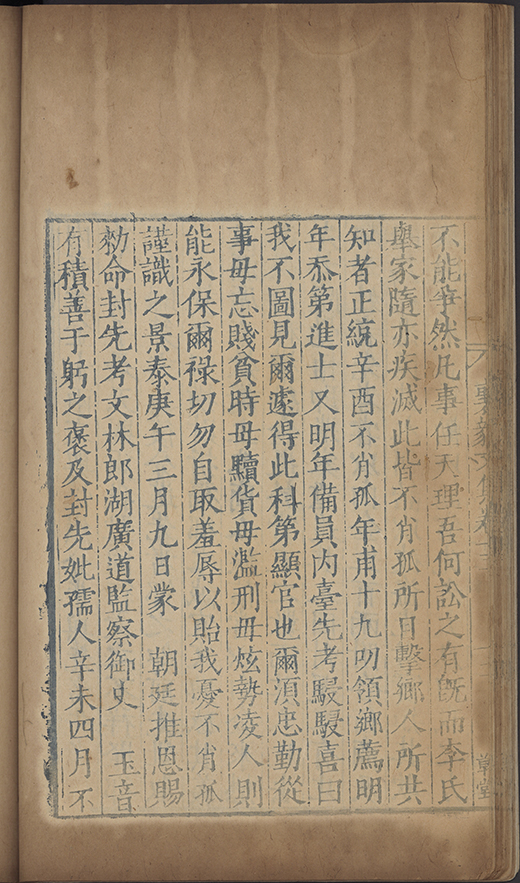 不能爭然凡事任天理吾何訟之有既而李氏
舉家隨亦疾滅此皆不肖孤所目擊鄉人所共
知者正統辛酉不肖孤年甫十九叨領鄉薦明
年忝第進士又明年備員內臺先考駸駸喜曰
我不圖見爾遽得此科第顯官也爾須忠勤從
事毋忘賤貧時毋黷貨毋濫刑毋炫勢凌人則
能永保爾祿切勿自取羞辱以貽我憂不肖孤
謹識之景泰庚午三月九日蒙 朝廷推恩賜
勑命封先考文林郎湖廣道監察御史 玉音
有積善于躬之褒及封先妣孺人辛未四月不